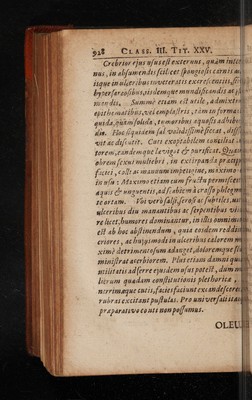 928 CLASS. III. TIT. XXV.
Crebrior ejus usus est externus, quàm inter-
nus, in absumendis scilicet spongiosis carnis au-
iisque in ulceribus inveteratis excrescentiis,
hypersarcosibus, iisdemque mundificandis at
mendis. Summè etiam est utile, admixtum
epithematibus, vel emplastris, tàm in forma li-
quida, quàm solida, tumoribus aquosis adhibi-
dis. Hoc siquidem sal validissimè siccat,
vit ac discutit. Cuti exoptabilem conciliat
torem, eandemque lævigat & purificat.
obrem sexui muliebri, in extirpando
faciei, collì ac manuum impetigine,
in usu: Maximo etiam cum fructu
aquis & unguentis, ad scabiem à crasso phlegm
te ortam. Vbi verò salsi, serosi ac subtiles,
ulceribus diu manantibus ac serpentibus
re licet, humores dominantur, in illis omnino
est ab hoc abstinendum, quia eosdem reddit
criores, ac hujusmodi in ulceribus calorem
ximè detrimentosum adauget, doloremque
ministrat acerbiorem. Plus etiam damni
utilitatis adferre ejusdem usus potest, dum
litrum quædam constitutionis plethoricæ,
nerrimæque cutis, facies faciunt excandescere
rubras excitant pustulas. Pro universali itaque
præparativo cutis non possumus.
OLEUM